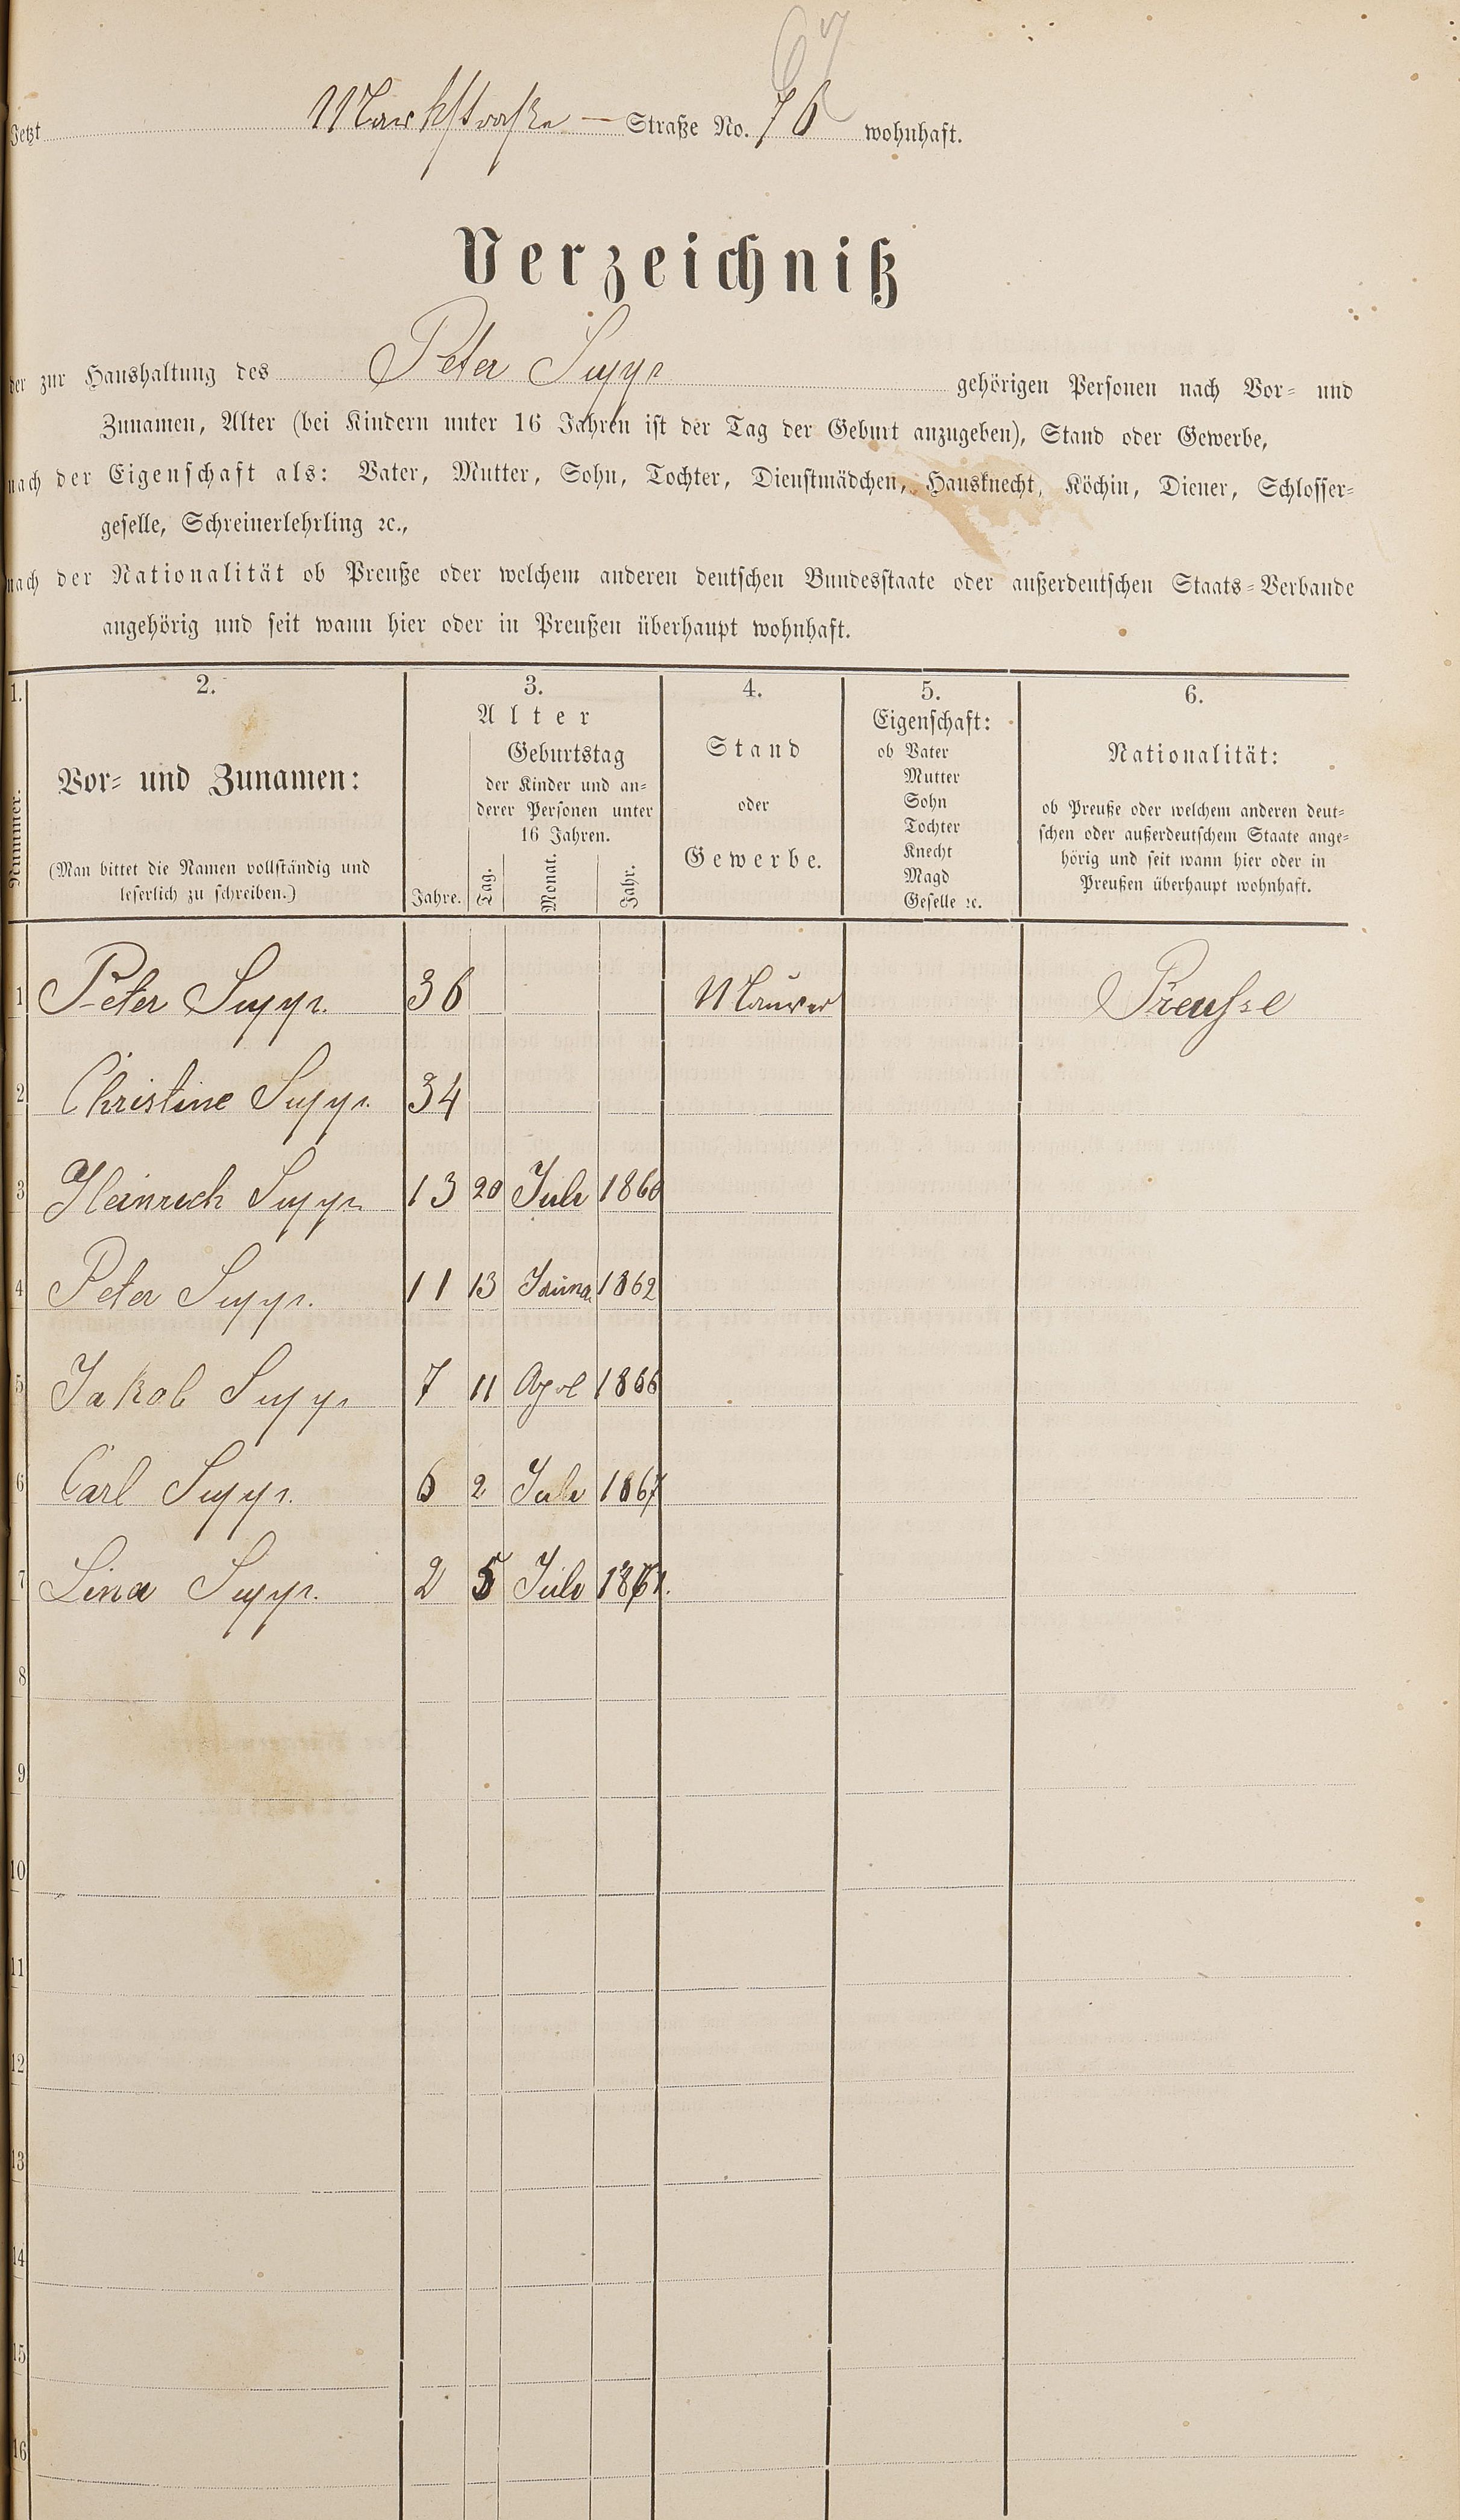 67
Jetzt Markstraße — Straße No. 76 wohnhaft.
Verzeichniß
der zur Haushaltung des Peter gehörigen Personen nach Vor- und
Zunamen, Alter (bei Kindern unter 16 Jahren ist der Tag der Geburt anzugeben), Stand oder Gewerbe,
nach der Eigenschaft als: Vater, Mutter, Sohn, Tochter, Dienstmädchen, Hausknecht, Köchin, Diener, Schlosser-
geselle, Schreinerlehrling ꝛc.,
nach der Nationalität ob Preuße oder welchem anderen deutschen Bundesstaate oder außerdeutschen Staats-Verbande
angehörig und seit wann hier oder in Preußen überhaupt wohnhaft.
1.
Nummer.
2.
Vor- und Zunamen:
(Man bittet die Namen vollständig und
leserlich zu schreiben.)
3.
Alter
Geburtstag
der Kinder und an-
derer Personen unter
16 Jahren.
Jahre. Tag. Monat. Jahr.
4.
Stand
oder
Gewerbe.
5.
Eigenschaft:
ob Vater
Mutter
Sohn
Tochter
Knecht
Magd
Geselle ꝛc.
6.
Nationalität:
ob Preuße oder welchem anderen deut-
schen oder außerdeutschem Staate ange-
hörig und seit wann hier oder in
Preußen überhaupt wohnhaft.
1 Peter 36 Maurer Preusse
2 Christine 34
3 Heinrich 13 20 Juli 1860
4 Peter 11 13 1862
5 Jakob 7 11 1866
6 Carl 6 2 Juli 1867
7 Lina 2 5 Juli 1871.
8
9
10
11
12
13
14
15
16